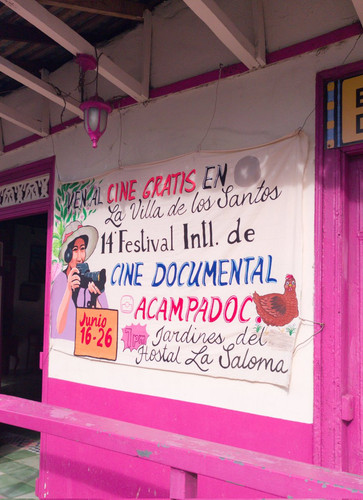 VEN AL CINE GRATIS EN
La Villa de los Santos
14° Festival Intl. de
CINE DOCUMENTAL
ACAMPADOC.
Junio
16-26
Jardines del
Hostal La Saloma